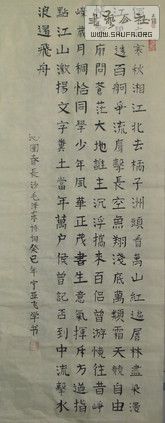 WWW.SHUFA.ORG
寒秋湘江北去橘子洲頭看萬山紅遍層林盡染漫
江碧透百舸爭流鷹擊長空魚翔淺底萬類霜天競自由
廓問蒼茫大地誰主沉浮攜來百侶曾遊憶往昔崢
嶸歲月稠恰同學少年風華正茂書生意氣揮斥方遒指
點江山激揚文字糞土當年萬戶侯曾記否到中流擊水
浪遏飛舟
沁園春長沙毛澤東作詞癸巳年宁亚飞学书